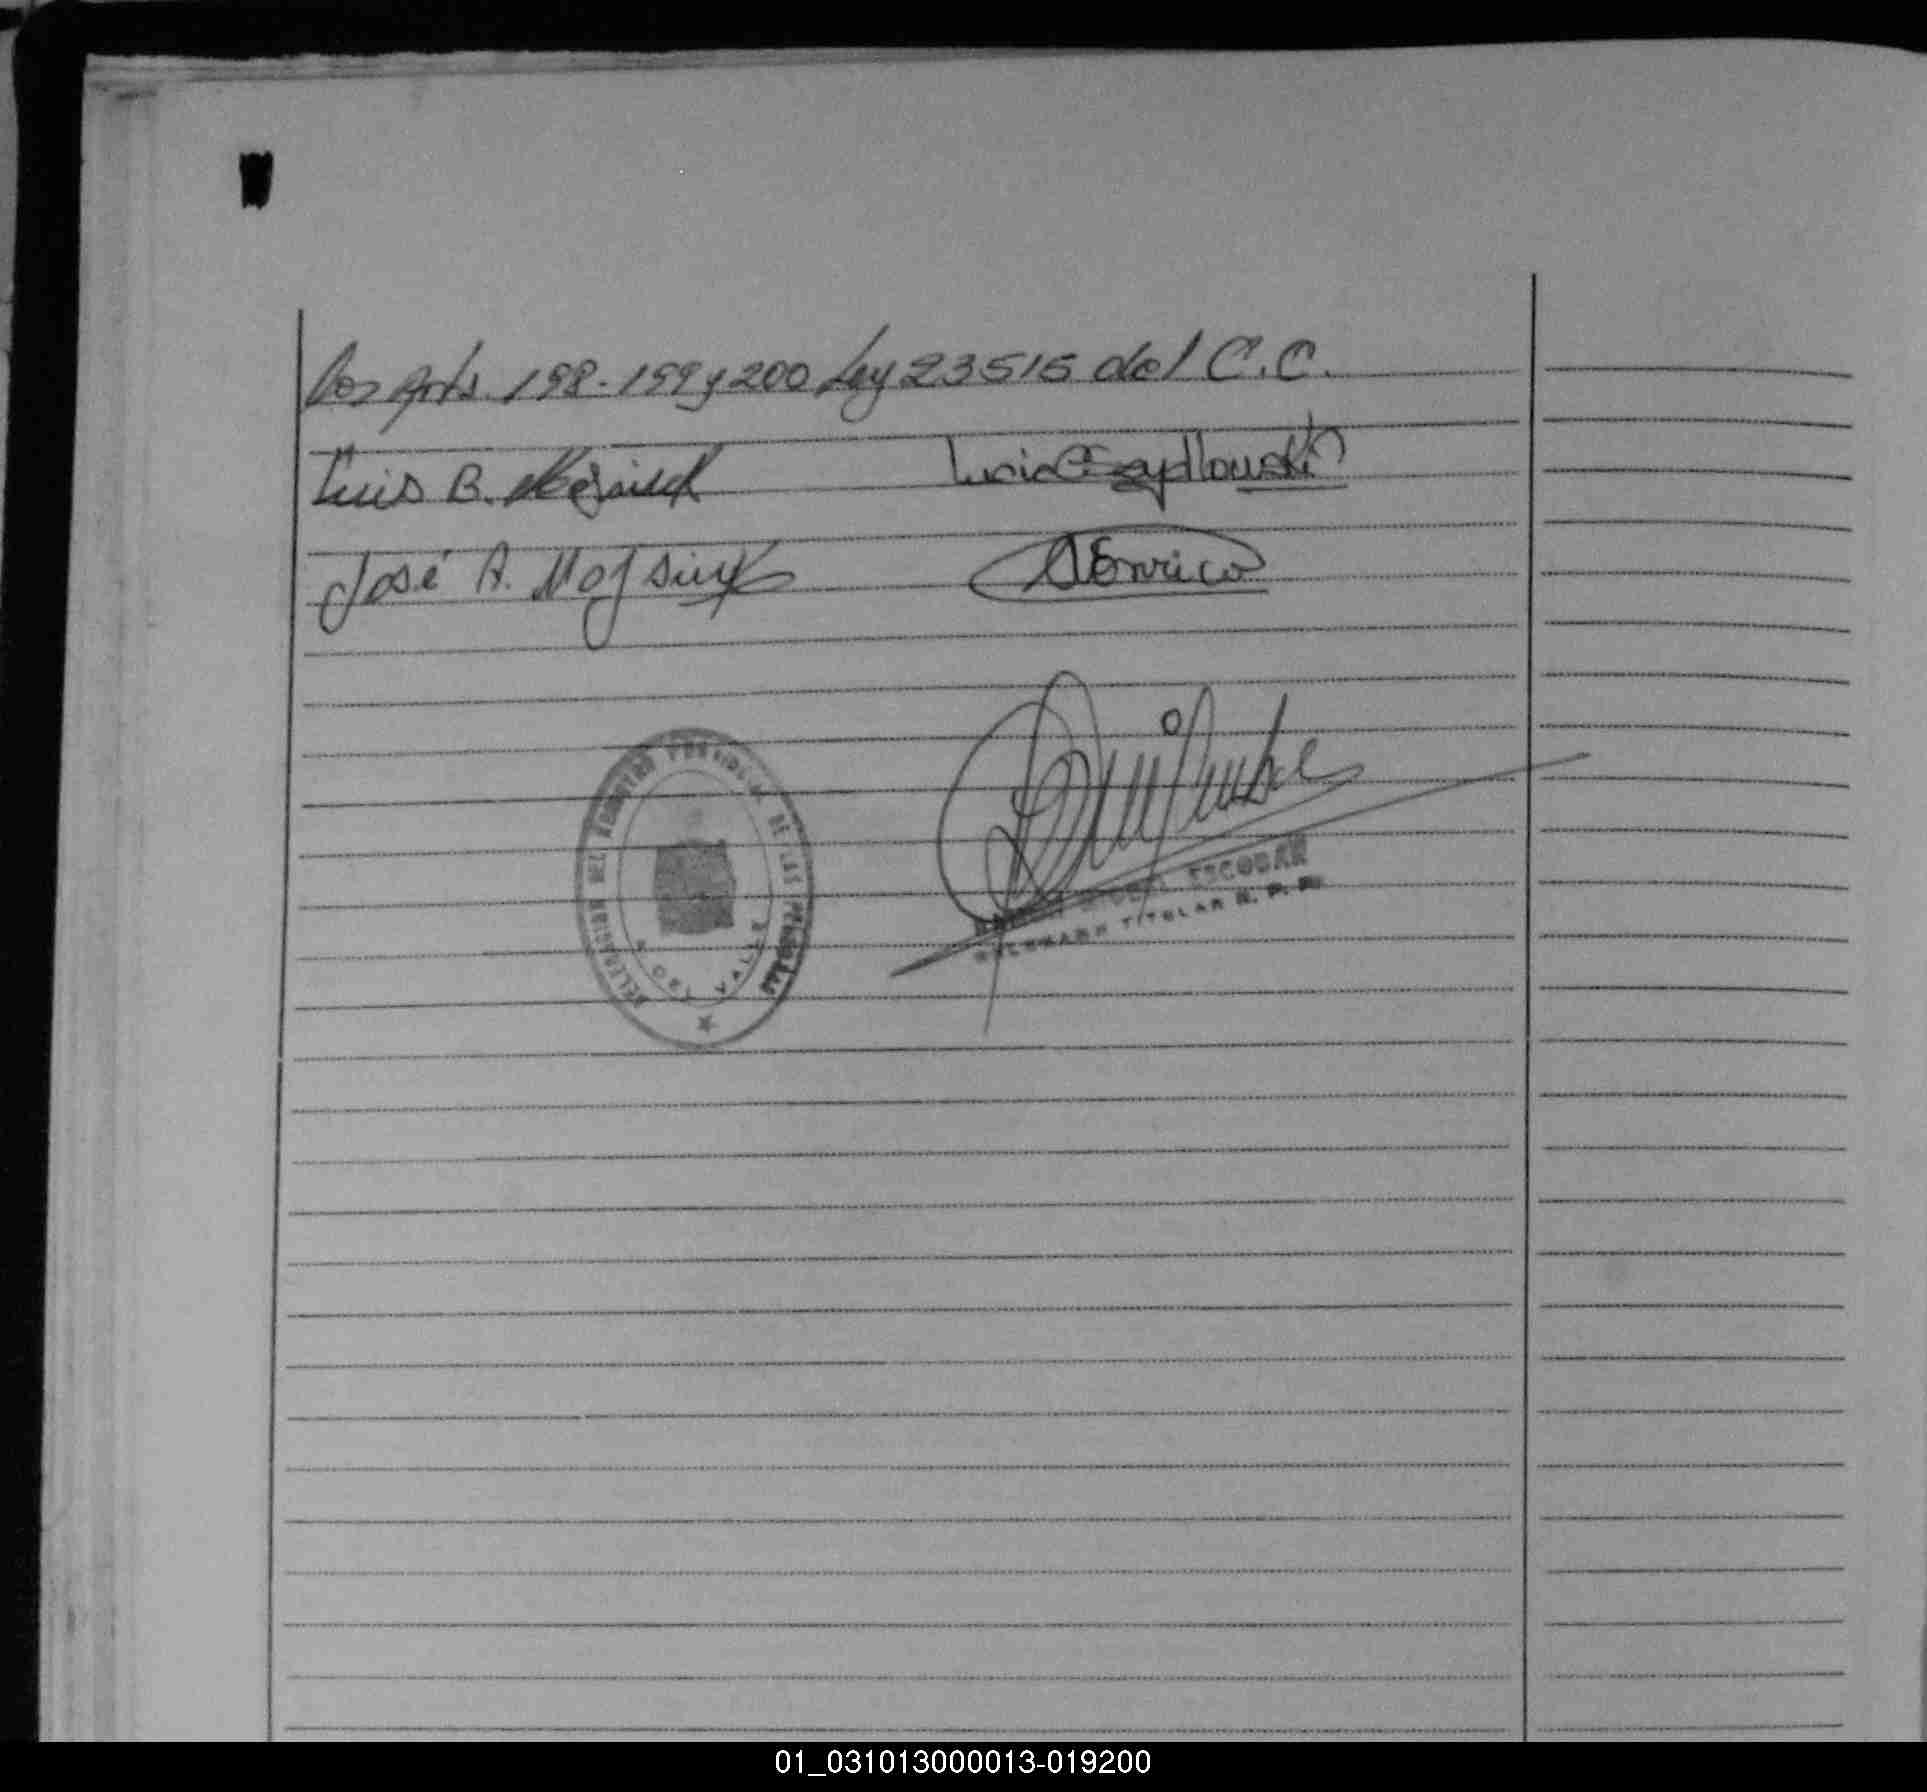 los Arts. 198-199 y 200 Ley 23515 del C.C.
Luis B.
Lucia Szydlowski
José A. Mojsiuk
DEnrico
DELEGACION DEL REGISTRO PROVINCIAL DE LAS PERSONAS
2 DO. VALLE
ESCOBAR
TITULAR R. P. P.
01_031013000013-019200